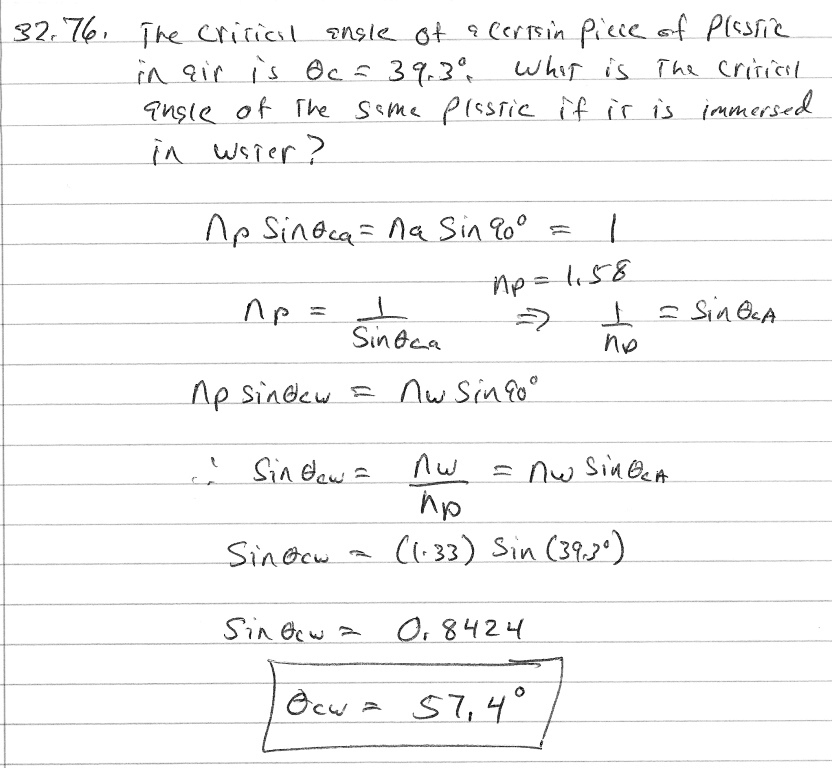 32.76. The critical angle of a certain piece of plastic
in air is θc = 39.3°. What is the critical
angle of the same plastic if it is immersed
in water?
np sinθca = na sin 90° = 1
np = 1.58
np = 1/sinθca ⇒ 1/np = sin θcA
np sinθcw = nw sin 90°
∴ sin θcw = nw/np = nw sin θcA
sin θcw = (1.33) sin (39.3°)
sin θcw = 0.8424
θcw = 57.4°